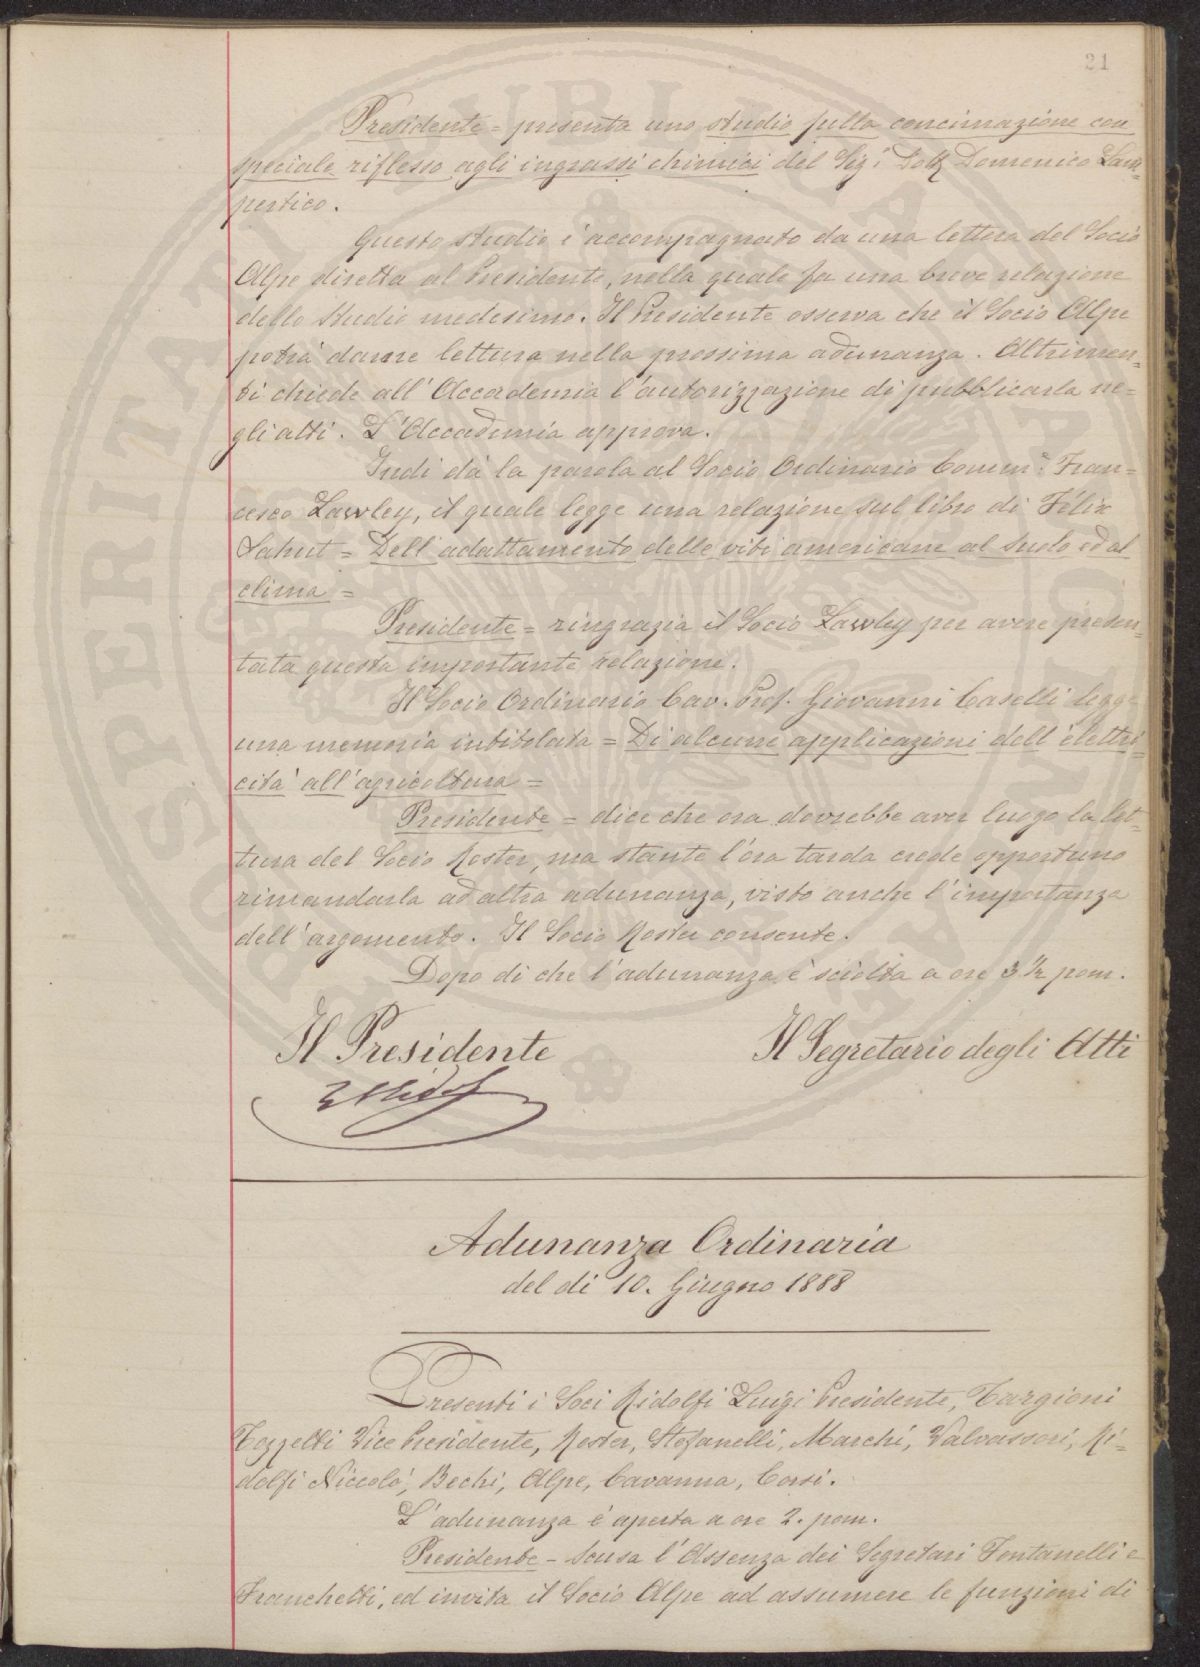 21
Presidente = presenta uno studio sulla concimazione con
speciale riflesso agli ingrassi chimici del Sig. Dott. Domenico Lam=
pertico.
Questo studio è accompagnato da una lettera del Socio
Alpe diretta al Presidente, nella quale fa una breve relazione
dello studio medesimo. Il Presidente osserva che il Socio Alpe
potrà darne lettura nella prossima adunanza. Altrimen=
ti chiede all'Accademia l'autorizzazione di pubblicarla ne=
gli atti. L'Accademia approva.
Indi dà la parola al Socio Ordinario Comm. Fran=
cesco Lawley, il quale legge una relazione sul libro di Félix
Sahut = Dell'adattamento delle viti americane al suolo ed al
clima =
Presidente = ringrazia il Socio Lawley per avere presen=
tata questa importante relazione.
Il Socio Ordinario Cav. Prof. Giovanni Caselli legge
una memoria intitolata = Di alcune applicazioni dell'elettri=
cità all'agricoltura =
Presidente = dice che ora dovrebbe aver luogo la let=
tura del Socio Roster, ma stante l'ora tarda crede opportuno
rimandarla ad altra adunanza, visto anche l'importanza
dell'argomento. Il Socio Roster consente.
Dopo di che l'adunanza è sciolta a ore 3 ½ pom.
Il Presidente Il Segretario degli Atti
Adunanza Ordinaria
del dì 10. Giugno 1888
Presenti i Soci Ridolfi Luigi Presidente, Targioni
Tozzetti Vice Presidente, Roster, Stefanelli, Marchi, Valvassori, Ri=
dolfi Niccolò, Bechi, Alpe, Cavanna, Corsi.
L'adunanza è aperta a ore 2. pom.
Presidente - Scusa l'Assenza dei Segretari Fontanelli e
Franchetti, ed invita il Socio Alpe ad assumere le funzioni di